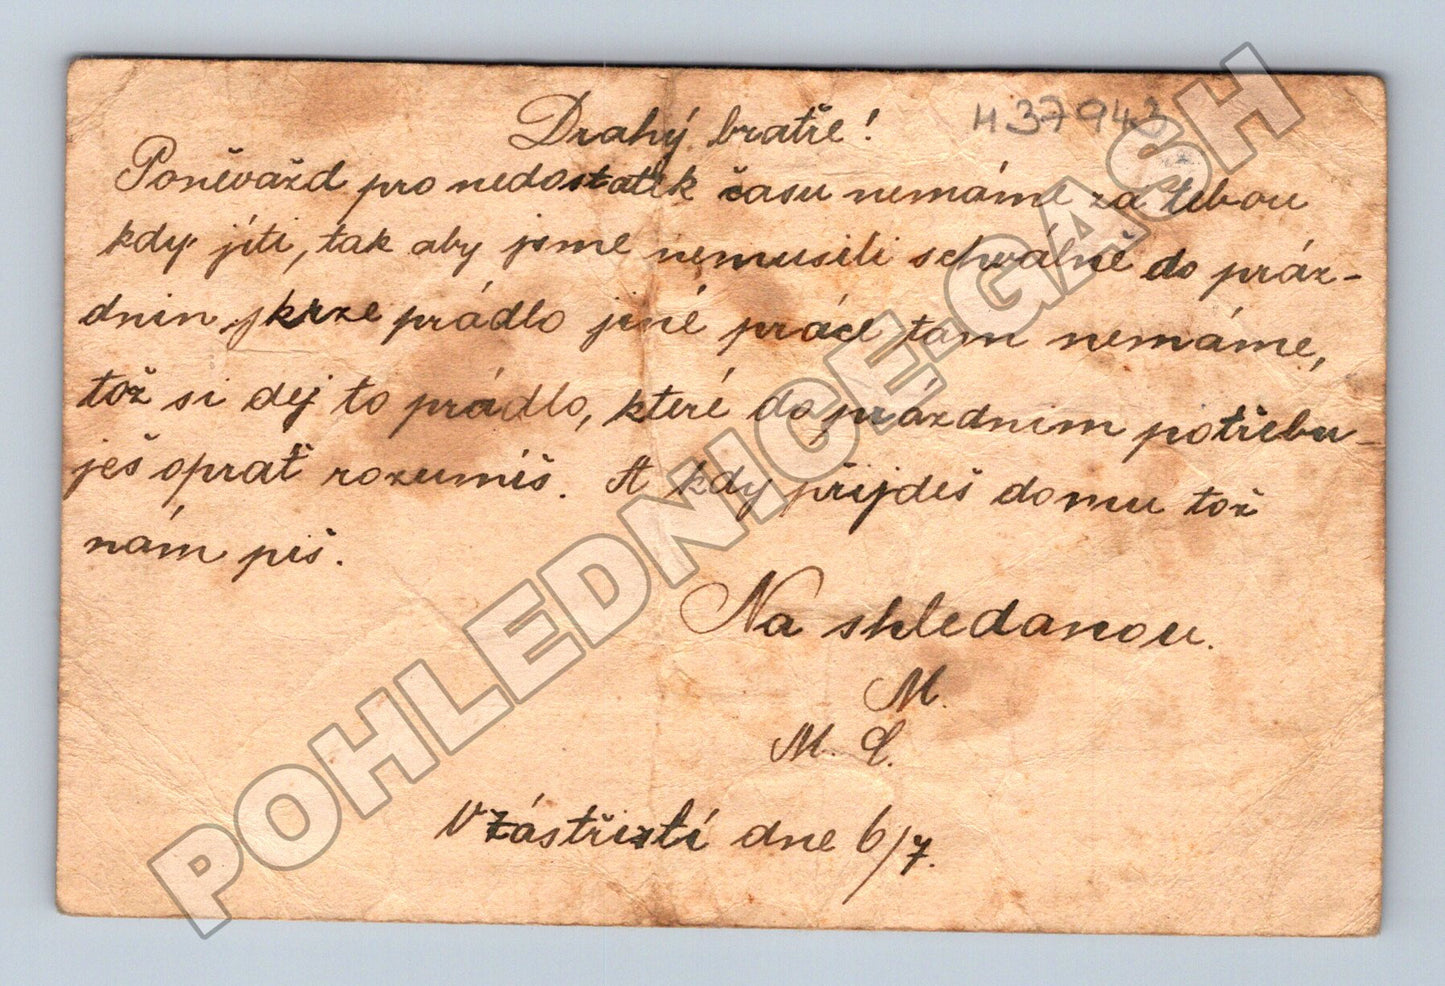 H37943
Drahý bratře!
Poněvažd pro nedostatek času nemáme za tebou
kdy jíti, tak aby jsme nemusili schválně do práz-
dnin skrze prádlo jiné práce tam nemáme,
tož si dej to prádlo, které do prázdnim potřebu-
ješ oprať rozumíš. A kdy přijdeš domu tož
nám piš.
Na shledanou.
M.
M. L.
V Zástřizlí dne 6/7.
POHLEDNICE.GASH